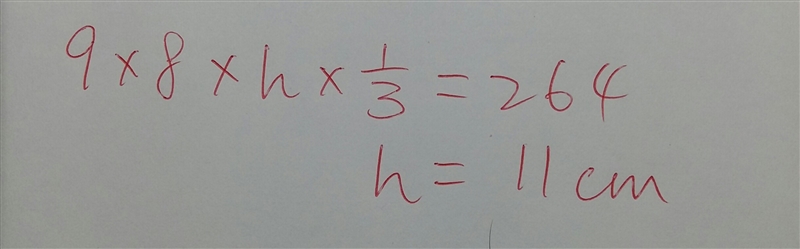 9 × 8 × h × 1/3 = 264
h = 11 cm